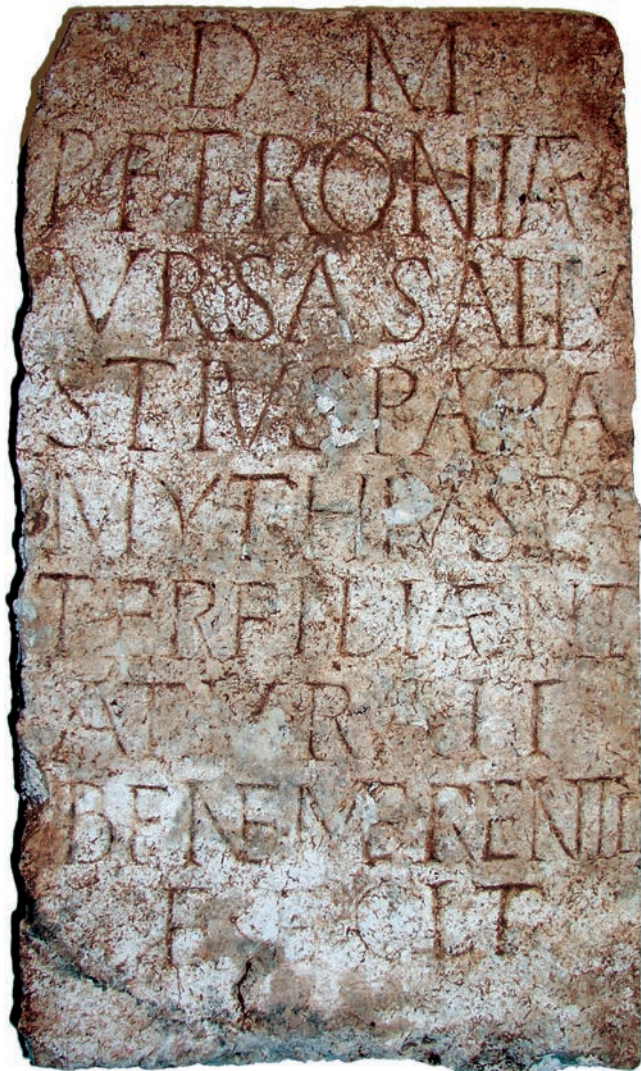 D M
PETRONIAE
VRSA SALLV
STIVS PARA
MYTHIVS
TER FILIAE
BENEMERENTI
FECIT